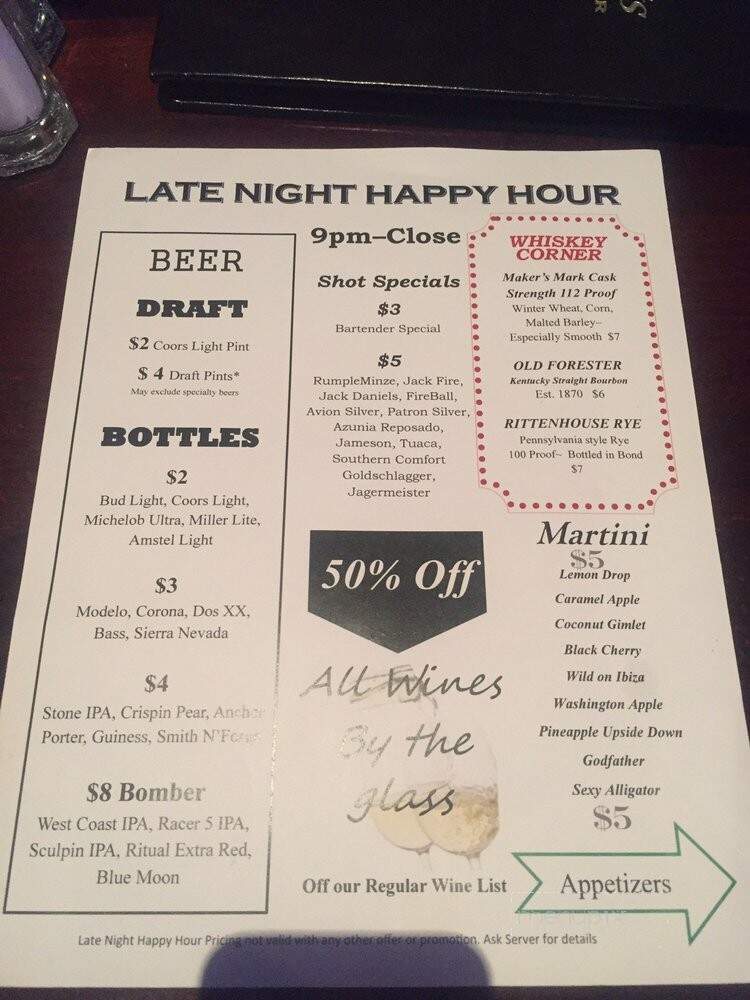 LATE NIGHT HAPPY HOUR
BEER
DRAFT
$2 Coors Light Pint
$ 4 Draft Pints*
May exclude specialty beers
BOTTLES
$2
Bud Light, Coors Light,
Michelob Ultra, Miller Lite,
Amstel Light
$3
Modelo, Corona, Dos XX,
Bass, Sierra Nevada
$4
Stone IPA, Crispin Pear, Anchor
Porter, Guiness, Smith N'Forge
$8 Bomber
West Coast IPA, Racer 5 IPA,
Sculpin IPA, Ritual Extra Red,
Blue Moon
9pm–Close
Shot Specials
$3
Bartender Special
$5
RumpleMinze, Jack Fire,
Jack Daniels, FireBall,
Avion Silver, Patron Silver,
Azunia Reposado,
Jameson, Tuaca,
Southern Comfort
Goldschlagger,
Jagermeister
50% Off
All Wines
By the
glass
Off our Regular Wine List
WHISKEY
CORNER
Maker's Mark Cask
Strength 112 Proof
Winter Wheat, Corn,
Malted Barley~
Especially Smooth $7
OLD FORESTER
Kentucky Straight Bourbon
Est. 1870 $6
RITTENHOUSE RYE
Pennsylvania style Rye
100 Proof~ Bottled in Bond
$7
Martini
$5
Lemon Drop
Caramel Apple
Coconut Gimlet
Black Cherry
Wild on Ibiza
Washington Apple
Pineapple Upside Down
Godfather
Sexy Alligator
$5
Appetizers
Late Night Happy Hour Pricing not valid with any other offer or promotion. Ask Server for details